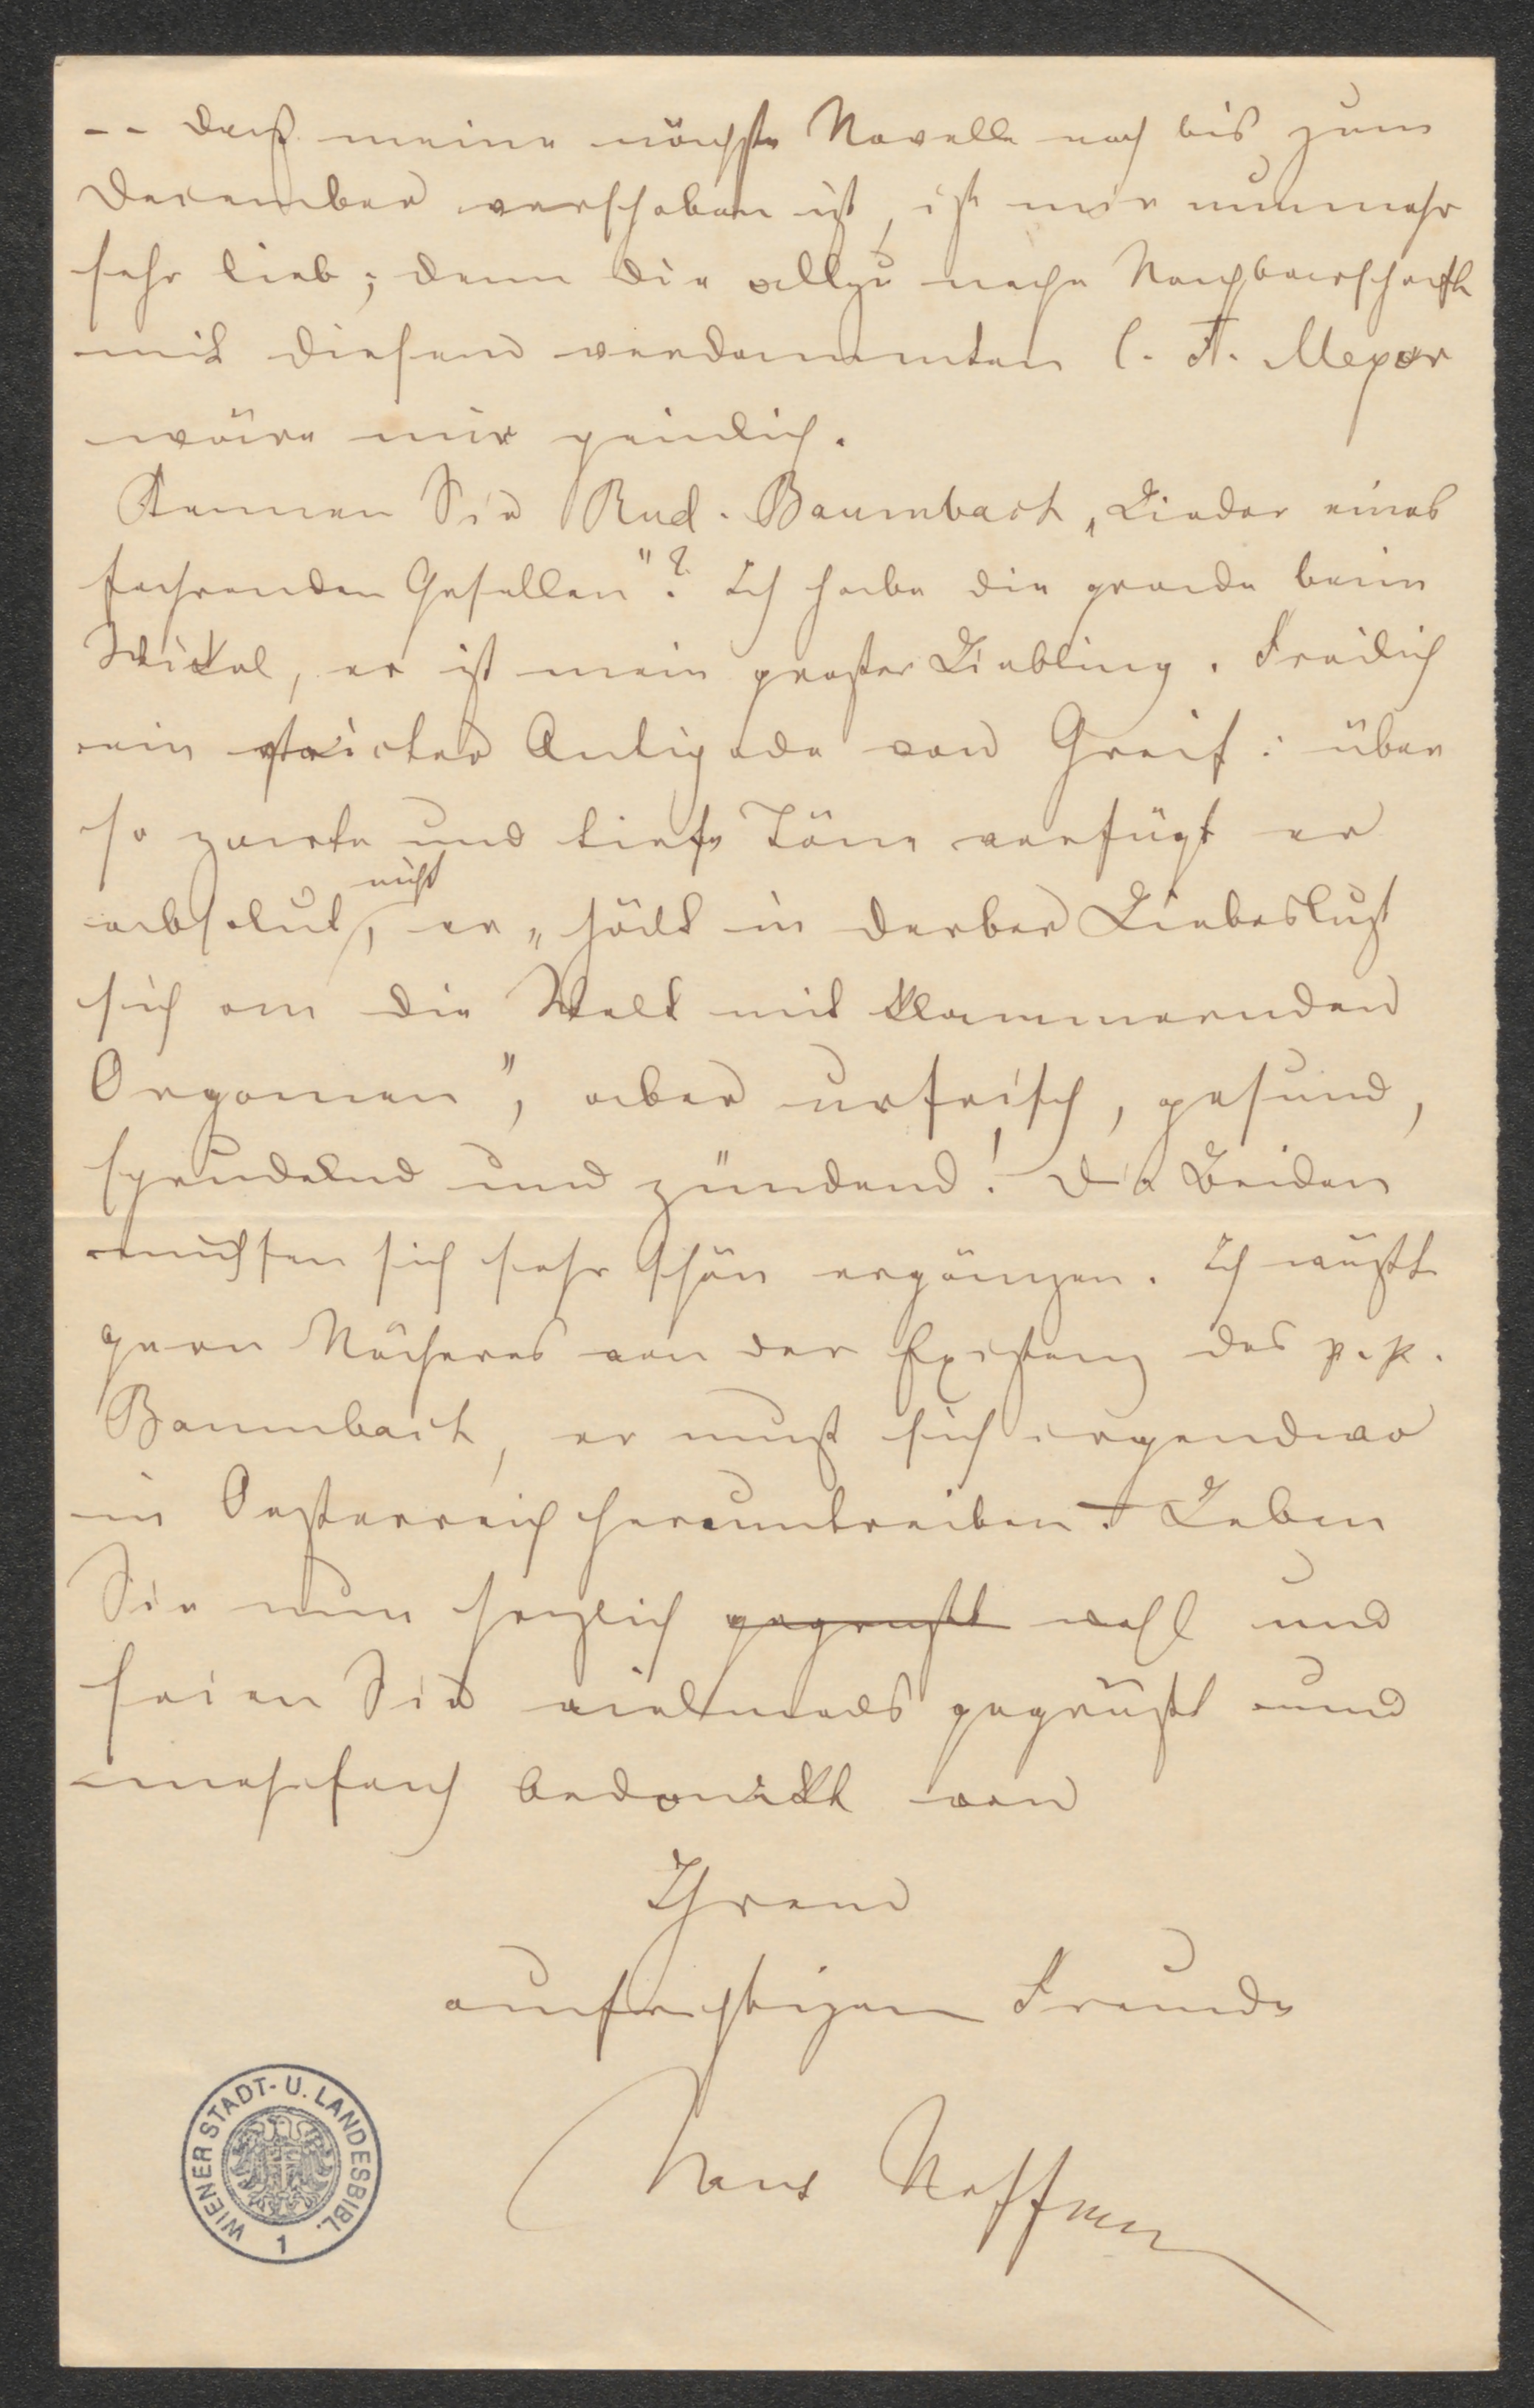 -- daß meine nächste Novelle noch bis zum
December verschoben ist, ist mir nunmehr
sehr lieb; denn die allzu nahe Nachbarschaft
mit diesem verdammten C. F. Meyer
wäre mir peinlich.
Kennen Sie Rud. Baumbach „Lieder eines
fahrenden Gesellen"? Ich habe die grade beim
Wickel, er ist mein großer Liebling. Freilich
ein stricter Antipode von Greif: über
so zarte und tiefe Töne verfügt er
absolut nicht, er „hält in derber Liebeslust
sich an die Welt mit klammernden
Organen", aber urfrisch, gesund,
sprudelnd und zündend! Die Beiden
müssen sich sehr schön ergänzen. Ich wüßte
gern Näheres von der Existenz des p. p.
Baumbach, er muß sich irgendwo
in Oesterreich herumtreiben. – Leben
Sie nun herzlich gegrüßt wohl und
seien Sie vielmals gegrüßt und
mehrfach bedankt von
Ihrem
aufrichtigen Freunde
Hans Hoffmann
WIENER STADT- U. LANDESBIBL.
1